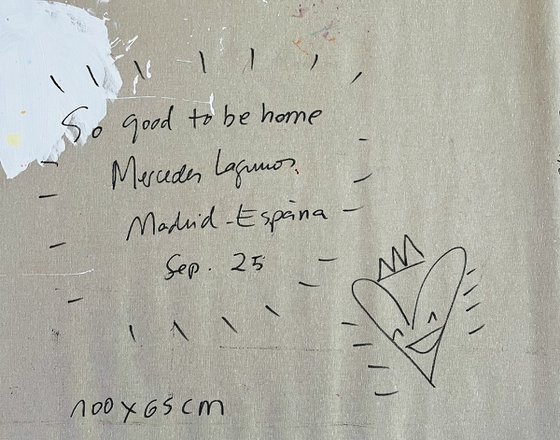 So good to be home
Mercedes Lagunos
Madrid - España
Sep. 25
100 x 65 cm